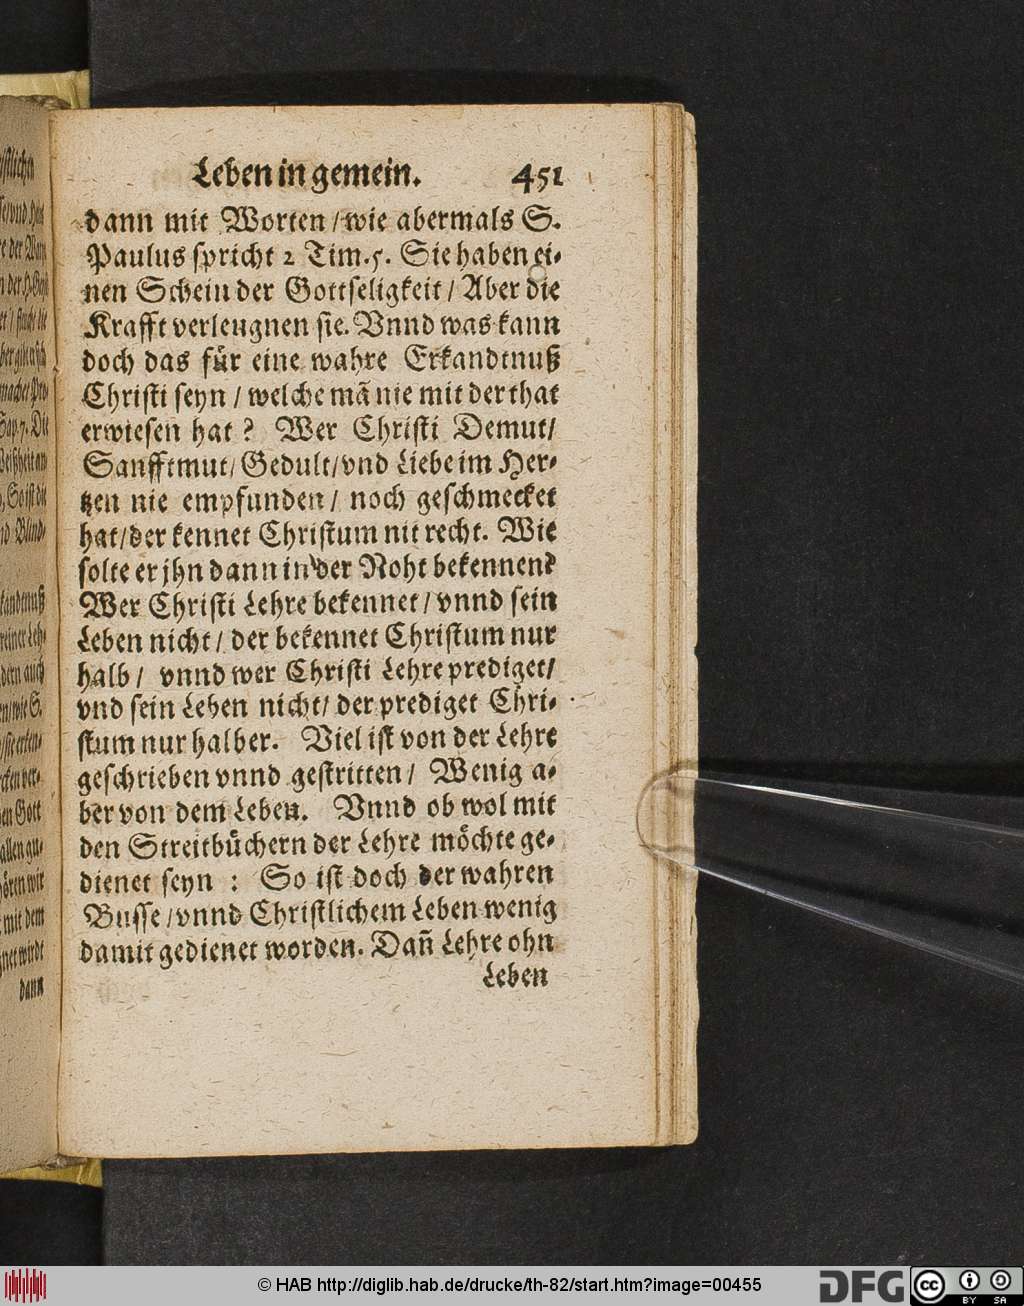 Leben in gemein. 451
dann mit Worten / wie abermals S.
Paulus spricht 2 Tim. 5. Sie haben ei-
nen Schein der Gottseligkeit / Aber die
Krafft verleugnen sie. Vnnd was kann
doch das für eine wahre Erkandtnuß
Christi seyn / welche mã nie mit der that
erwiesen hat? Wer Christi Demut /
Sanfftmut / Gedult / vnd Liebe im Her-
tzen nie empfunden / noch geschmecket
hat / der kennet Christum nit recht. Wie
solte er jhn dann in der Noht bekennen?
Wer Christi Lehre bekennet / vnnd sein
Leben nicht / der bekennet Christum nur
halb / vnnd wer Christi Lehre prediget /
vnd sein Leben nicht / der prediget Chri-
stum nur halber. Viel ist von der Lehre
geschrieben vnnd gestritten / Wenig a-
ber von dem Leben. Vnnd ob wol mit
den Streitbüchern der Lehre möchte ge-
dienet seyn : So ist doch der wahren
Busse / vnnd Christlichem Leben wenig
damit gedienet worden. Dañ Lehre ohn
Leben
© HAB http://diglib.hab.de/drucke/th-82/start.htm?image=00455
DFG
cc BY SA